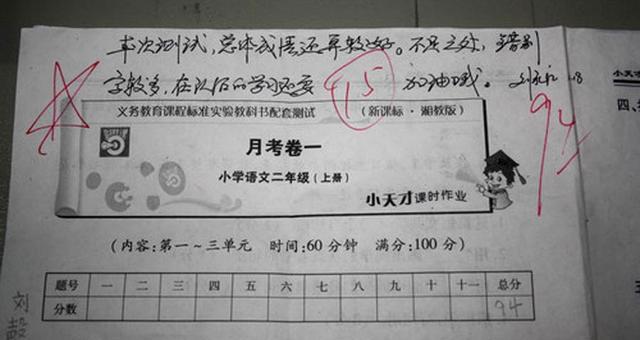 本次测试，总体成绩还算较好。不足之处，错别
字较多，在以后的学习还要 加油哦。
+1.5
94
义务教育课程标准实验教科书配套测试 （新课标·湘教版）
月考卷一
小学语文二年级（上册）
小天才课时作业
（内容：第一～三单元 时间：60分钟 满分：100分）
题号 一 二 三 四 五 六 七 八 九 十 十一 总分
分数 94
刘
小天才
四、